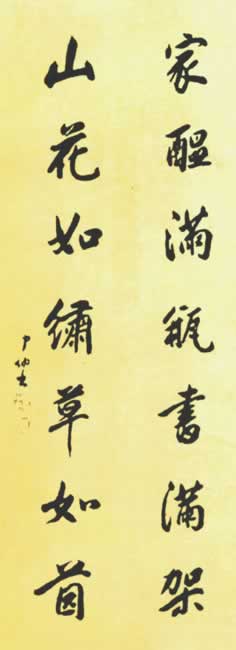 家醖滿瓶書滿架
山花如繡草如茵